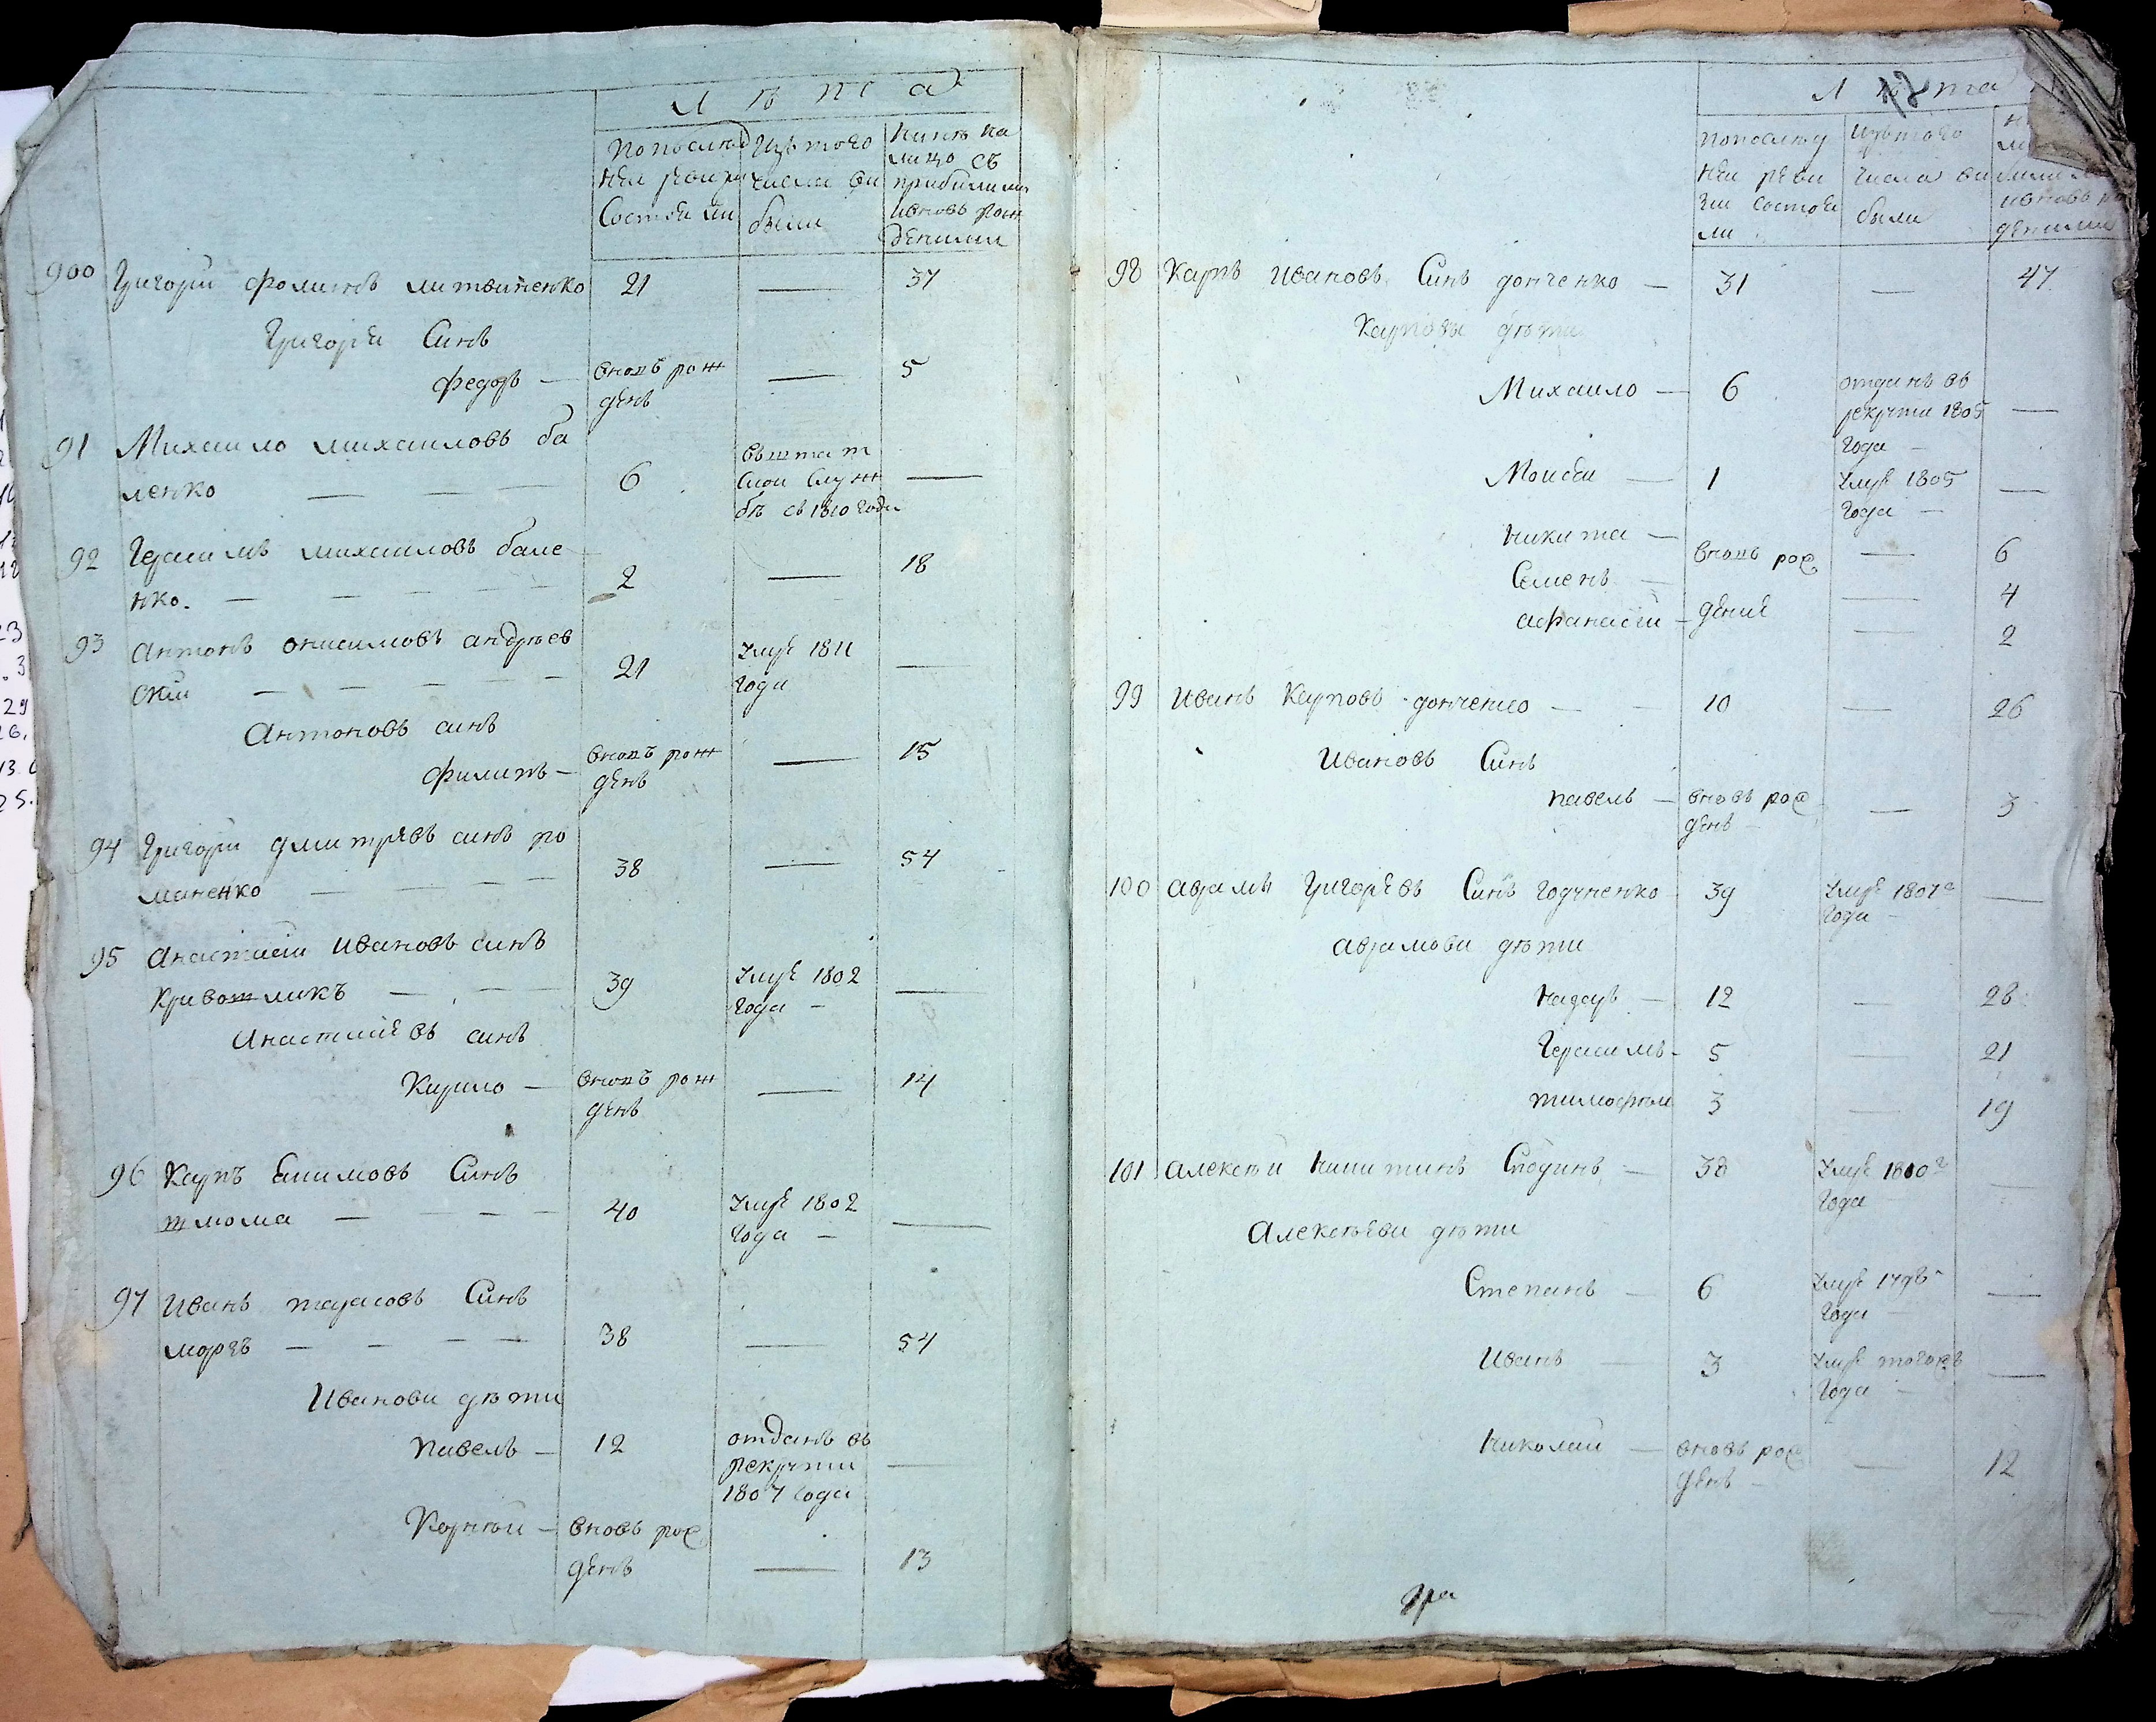 Лѣта
По послѣд
ней ревизи
Состояли
Изъ того
числа вы
были
Нынѣ на
лицо съ
прибылыми
и вновь рож
денными
900 Григорій Фоминъ литвиненко 21 — 37
Григорѣя Синъ
Федоръ — вновь рож — 5
денъ
91 Михаило михаиловъ ба
ленко — — — 6 въ штат
ной служ —
бѣ съ 1810 года
92 Герасимъ михаиловъ бале
нко. — — — — — 2 — 18
93 Антонъ онисимовъ андрѣев
скій — — — — 21 Умре 1811 —
года
Антоновъ синъ
Филипъ — вновь рож — 15
денъ
94 Григорій дмитріевъ синъ ро
маненко — — — — 38 — 54
95 Анастасій Ивановъ синъ
Кривошликъ — — — 39 Умре 1802 —
года —
Анастасіевъ синъ
Кирило — вновь рож — 14
денъ
96 Карпъ Екимовъ Синъ
тлюма — — — — 40 Умре 1802 —
года —
97 Иванъ тарасовъ Синъ
моръ — — — — 38 — 54
Иванови дѣти
Павелъ — 12 отданъ въ
рекрути —
1807 года
Корнѣй — вновь рож
денъ — 13
Лѣта
18
По послѣд
ней реви
зіи состоя
ли
Изъ того
числа вы
были
и вновь ро
денными
98 Карпъ Ивановъ Синъ донченко — 31 — 47
Карповы дѣти
Михаило — 6 отданъ въ
рекрути 1805 —
года —
Моисѣй — 1 Умре 1805 —
года —
Никита — вновь рож — 6
Семенъ — — 4
Афанасій — денніе — 2
99 Иванъ Карповъ донченко — — 10 — 26
Ивановъ Синъ
Павелъ — вновь рож — 3
денъ —
100 Аврамъ Григорѣевъ Синъ годуненко 39 Умре 1807г —
года —
Аврамови дѣти
Назаръ — 12 — 28
Герасимъ — 5 — 21
Тимофѣй 3 — 19
101 Алексѣй Никитинъ Сподинъ — 38 Умре 1800г —
года
Алексѣеви дѣти
Степанъ — 6 Умре 1798 —
года —
Иванъ — 3 Умре тогожъ —
года —
Николай — вновь рож — 12
денъ —
Гри